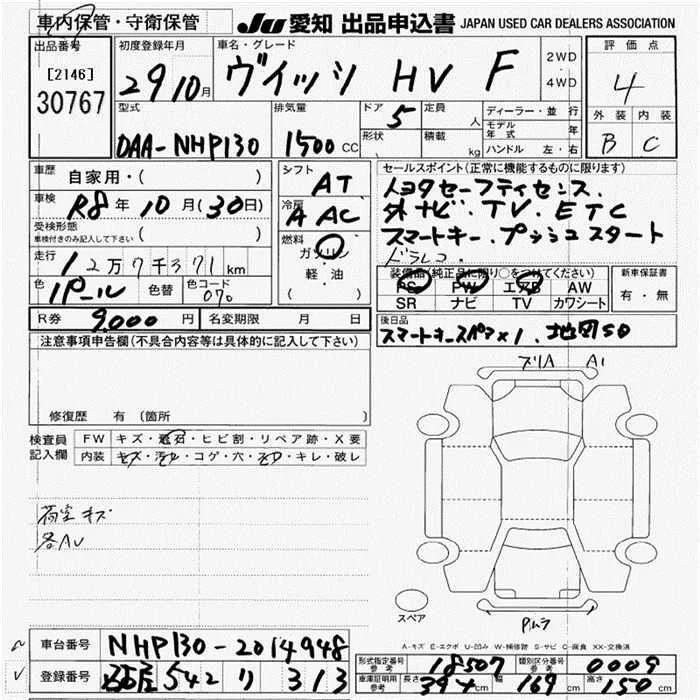 車内保管・守衛保管
JU 愛知 出品申込書 JAPAN USED CAR DEALERS ASSOCIATION
出品番号 初度登録年月 車名・グレード 2WD 評価点
[2146] 29 10月 ヴィッツ HV F ・ 4
30767 4WD
型式 排気量 ドア 定員 人 ディーラー・並 行 外装 内装
DAA-NHP130 1500 CC 5 モデル年式 年 B C
形状 積載 kg ハンドル 左・右
車歴 自家用・( ) シフト AT セールスポイント(正常に機能するものに限ります)
車検 R8年 10月(30日) 冷房 A AC トヨタセーフティセンス.
外ナビ. TV. ETC
受検形態 ( ) スマートキー. プッシュスタート
車検付きのみ記入して下さい
燃料 ガソリン ドラレコ.
走行 12万7千371km 軽・油 装備品(純正品に限り○をつけてください) 新車保証書
PS PW エアB AW 有・無
色 パール 色替 色コード 070 ( ) SR ナビ TV カワシート
R券 9,000円 名変期限 月 日 後日品
スマートキースペア×1. 地図SD
注意事項申告欄(不具合内容等は具体的に記入して下さい)
ズリA A1
修復歴 有(箇所 )
検査員 FW キズ・飛石・ヒビ割・リペア跡・X要
記入欄 内装 キズ・汚レ・コゲ・穴・スレ・キレ・破レ
荷室キズ
各AU
スペア
Pムラ
A-キズ E-エクボ U-凹み W-補修跡 S-サビ C-腐食 XX-交換済
車台番号 NHP130-2014948
登録番号 名古屋 542 リ 313
形式指定番号 参考 18507 類別区分番号 参考 0009
車庫証明用 参考 長さ 394cm 幅 169cm 高さ 150cm